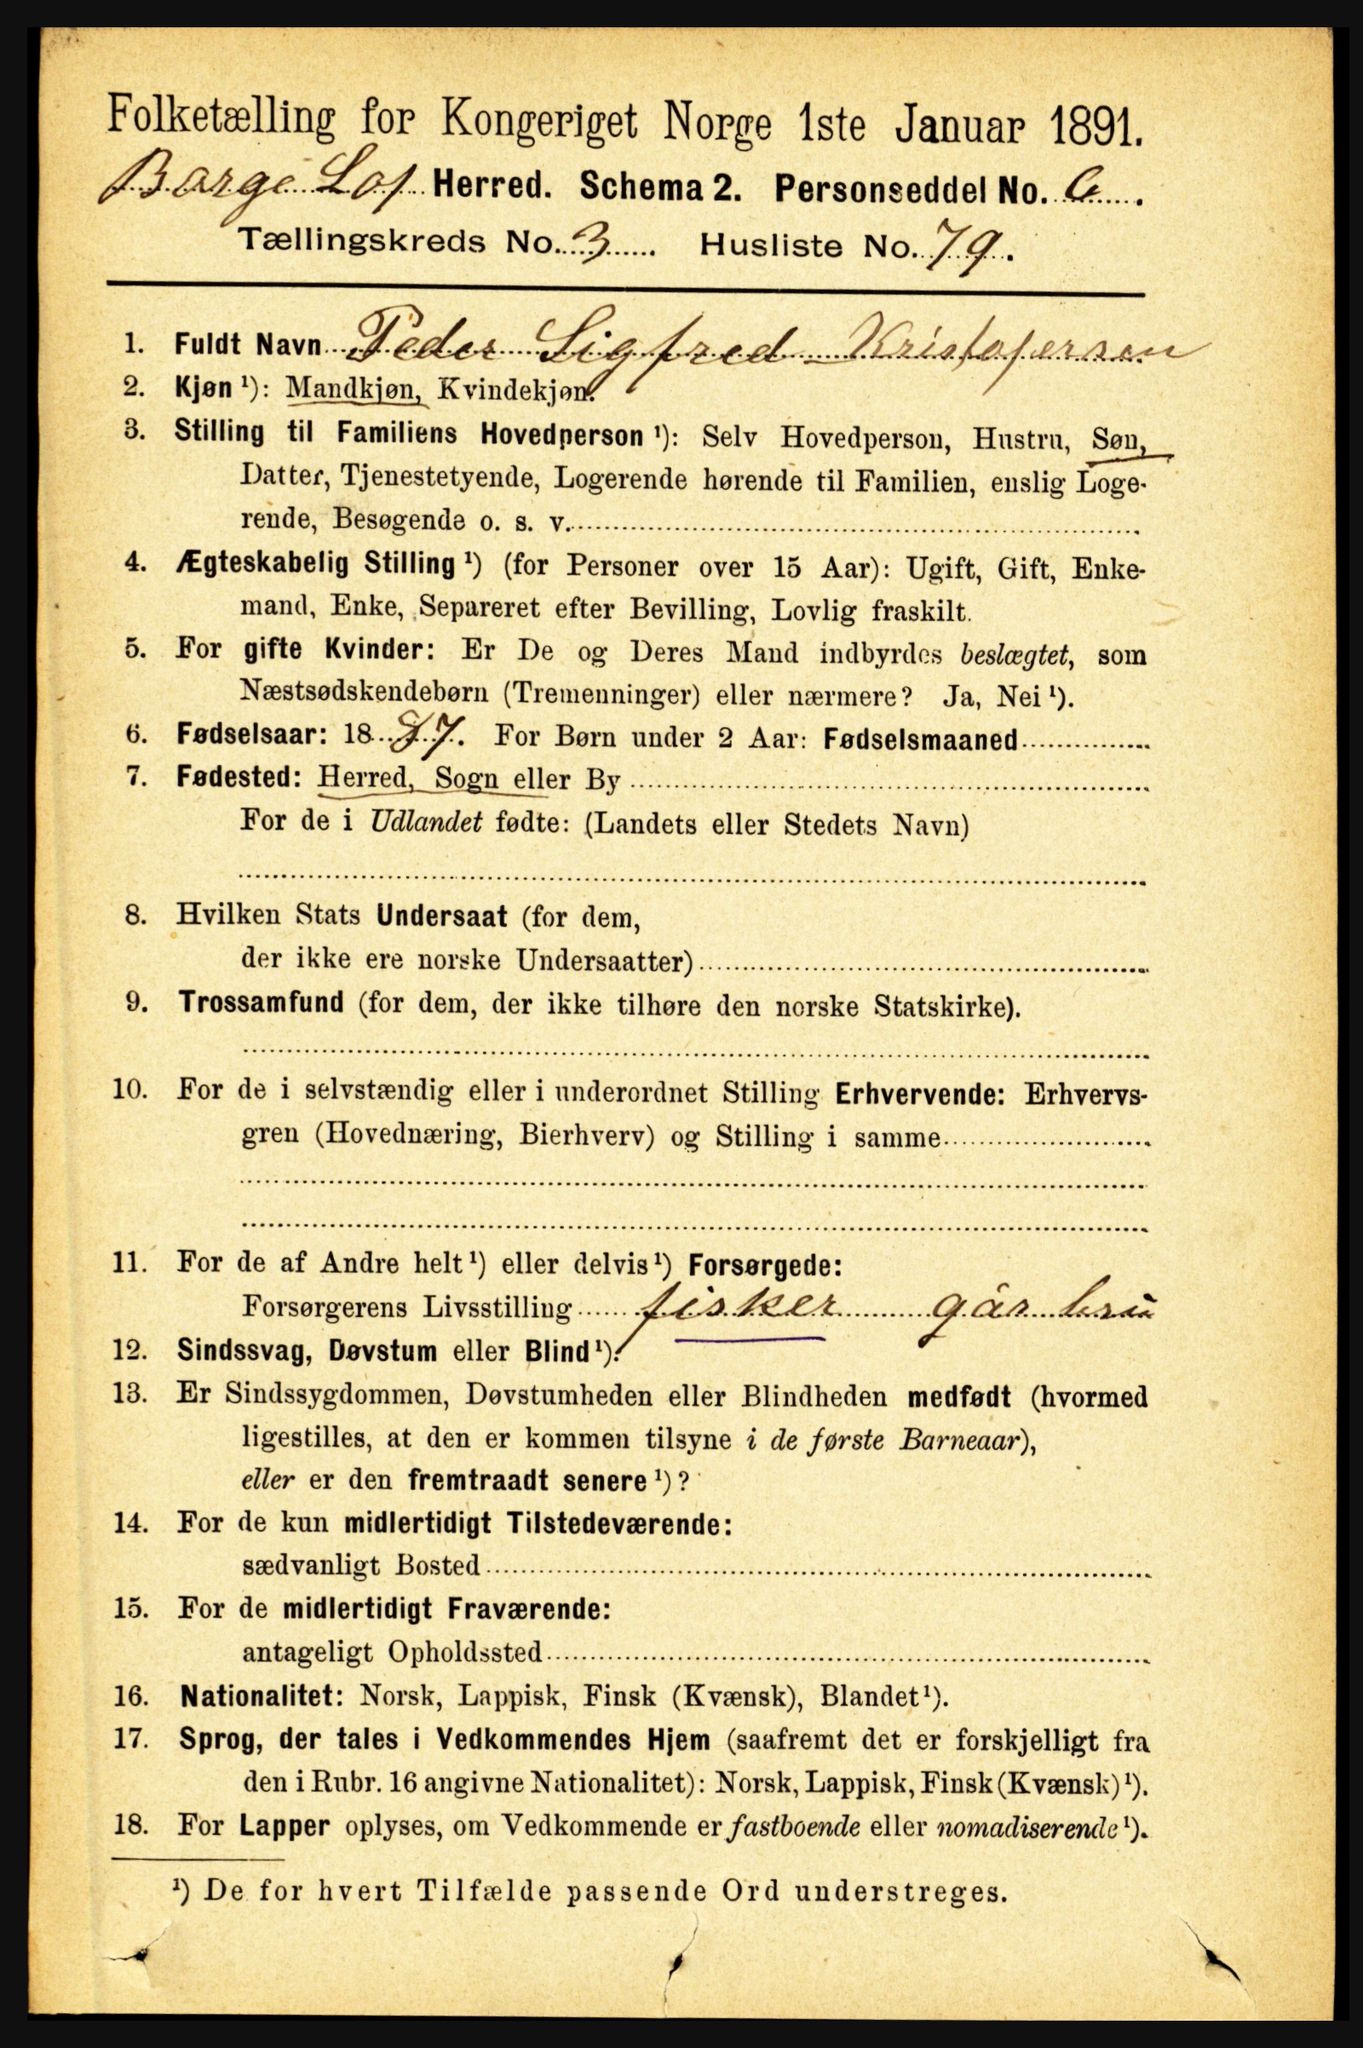 Folketælling for Kongeriget Norge 1ste Januar 1891.
Borge Lof Herred. Schema 2. Personseddel No. 6.
Tællingskreds No. 3. Husliste No. 79.
1. Fuldt Navn Peder Sigfred Kristofersen
2. Kjøn ¹): Mandkjøn, Kvindekjøn.
3. Stilling til Familiens Hovedperson ¹): Selv Hovedperson, Hustru, Søn,
Datter, Tjenestetyende, Logerende hørende til Familien, enslig Loge-
rende, Besøgende o. s. v.
4. Ægteskabelig Stilling ¹) (for Personer over 15 Aar): Ugift, Gift, Enke-
mand, Enke, Separeret efter Bevilling, Lovlig fraskilt.
5. For gifte Kvinder: Er De og Deres Mand indbyrdes beslægtet, som
Næstsødskendebørn (Tremenninger) eller nærmere? Ja, Nei ¹).
6. Fødselsaar: 1887. For Børn under 2 Aar: Fødselsmaaned
7. Fødested: Herred, Sogn eller By
For de i Udlandet fødte: (Landets eller Stedets Navn)
8. Hvilken Stats Undersaat (for dem,
der ikke ere norske Undersaatter)
9. Trossamfund (for dem, der ikke tilhøre den norske Statskirke).
10. For de i selvstændig eller i underordnet Stilling Erhvervende: Erhvervs-
gren (Hovednæring, Bierhverv) og Stilling i samme
11. For de af Andre helt ¹) eller delvis ¹) Forsørgede:
Forsørgerens Livsstilling fisker
12. Sindssvag, Døvstum eller Blind ¹).
13. Er Sindssygdommen, Døvstumheden eller Blindheden medfødt (hvormed
ligestilles, at den er kommen tilsyne i de første Barneaar),
eller er den fremtraadt senere ¹)?
14. For de kun midlertidigt Tilstedeværende:
sædvanligt Bosted
15. For de midlertidigt Fraværende:
antageligt Opholdssted
16. Nationalitet: Norsk, Lappisk, Finsk (Kvænsk), Blandet ¹).
17. Sprog, der tales i Vedkommendes Hjem (saafremt det er forskjelligt fra
den i Rubr. 16 angivne Nationalitet): Norsk, Lappisk, Finsk (Kvænsk) ¹).
18. For Lapper oplyses, om Vedkommende er fastboende eller nomadiserende ¹).
¹) De for hvert Tilfælde passende Ord understreges.